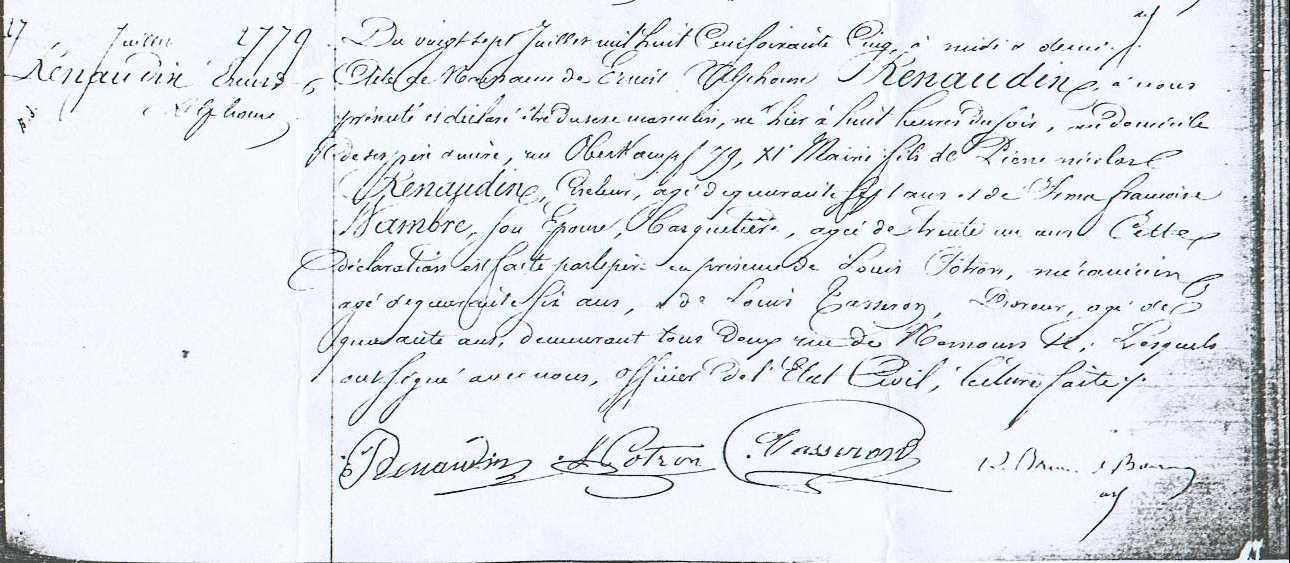 27 Juillet 2779
Renaudin Ernest
Alphonse
Du vingt sept Juillet mil huit Cent soixante Cinq, à midi & demi.
Acte de Naissance de Ernest Alphonse Renaudin, à nous
présenté et déclaré être du sexe masculin, né hier à huit heures du soir, au domicile
de ses père & mère, rue Oberkampf 79, XIe Mairie fils de Pierre nicolas
Renaudin, agé de quarante sept ans et de Irma françoise
Wambre, son Epouse, Casquetière, agée de trente un ans Cette
déclaration est faite par le père en présence de Louis Potron, mécanicien
agé de quarante six ans, & de Louis Tasseron, Doreur, agé de
quarante ans, demeurant tous deux rue de Nemours Lesquels
ont signé avec nous, officier de l'Etat Civil, lecture faite
Renaudin L Potron Tasseron